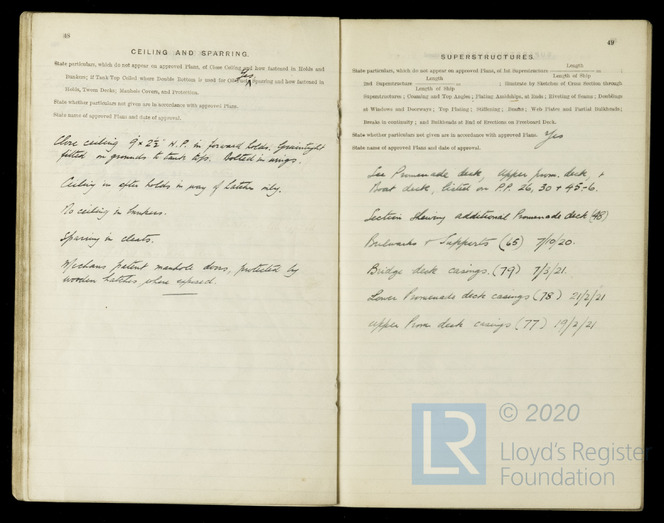 48
CEILING AND SPARRING.
State particulars, which do not appear on approved Plans, of Close Ceiling and how fastened in Holds and
Bunkers; if Tank Top Ceiled where Double Bottom is used for Oil Yes Sparring and how fastened in
Holds, 'Tween Decks; Manhole Covers, and Protection.
State whether particulars not given are in accordance with approved Plans.
State name of approved Plans and date of approval.
Close ceiling 9 x 2½" N.P. in forward holds. Graintight
fitted on grounds to tank tops. Bolted in wings.
Ceiling in after holds in way of hatches only.
No ceiling in bunkers.
Sparring in cleats.
Mechans patent manhole doors, protected by
wooden hatches where exposed.
49
SUPERSTRUCTURES.
State particulars, which do not appear on approved Plans, of 1st Superstructure Length / Length of Ship =
; 2nd Superstructure Length / Length of Ship = ; Illustrate by Sketches of Cross Section through
Superstructures; Coaming and Top Angles; Plating Amidships, at Ends; Riveting of Seams; Doublings
at Windows and Doorways; Top Plating; Stiffening; Beams; Web Plates and Partial Bulkheads;
Breaks in continuity; and Bulkheads at End of Erections on Freeboard Deck.
State whether particulars not given are in accordance with approved Plans. Yes
State name of approved Plans and date of approval.
See Promenade deck, Upper prom. deck, +
Boat deck, listed on P.P. 26, 30 + 45-6.
Section Shewing additional Promenade deck (48)
Bulwarks & Supports (65) 7/10/20.
Bridge deck casings. (79) 7/3/21.
Lower Promenade deck casings (78) 21/2/21
Upper Prom deck casings (77) 19/2/21
LR
© 2020
Lloyd's Register
Foundation